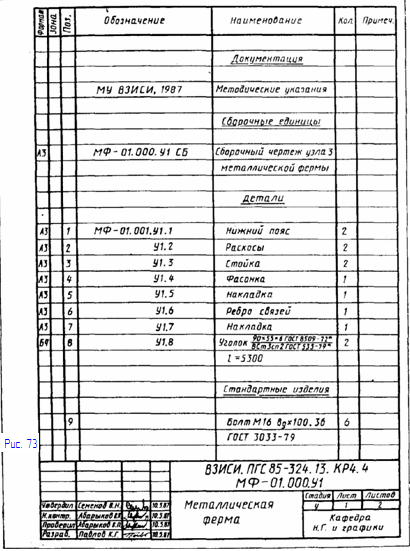 Формат Зона Поз. Обозначение Наименование Кол Примеч.
Документация
МУ ВЗИСИ, 1987 Методические указания
Сборочные единицы
А3 МФ-01.000.У1 СБ Сборочный чертеж узла 3
металлической фермы
Детали
А3 1 МФ-01.001.У1.1 Нижний пояс 2
А3 2 У1.2 Раскосы 2
А3 3 У1.3 Стойка 2
А3 4 У1.4 Фасонка 1
А3 5 У1.5 Накладка 1
А3 6 У1.6 Ребро связей 1
А3 7 У1.7 Накладка 1
БЧ 8 У1.8 Уголок 90×55×6 ГОСТ 8509-72* / ВСт3сп2 ГОСТ 535-79* 2
l = 5300
Стандартные изделия
9 Болт М16 8g×100.36 6
ГОСТ 3033-79
Рис. 73
ВЗИСИ. ПГС 85-324.13. КР4.4
МФ-01.000.У1
Стадия Лист Листов
У 1 2
Утвердил Семенов В.Н. 10.5.87
Н.контр. Абарыков В.П. 10.5.87
Проверил Абарыков В.П. 10.5.87
Разраб. Павлов К.Г. 10.5.87
Металлическая
ферма
Кафедра
Н.Г. и графики